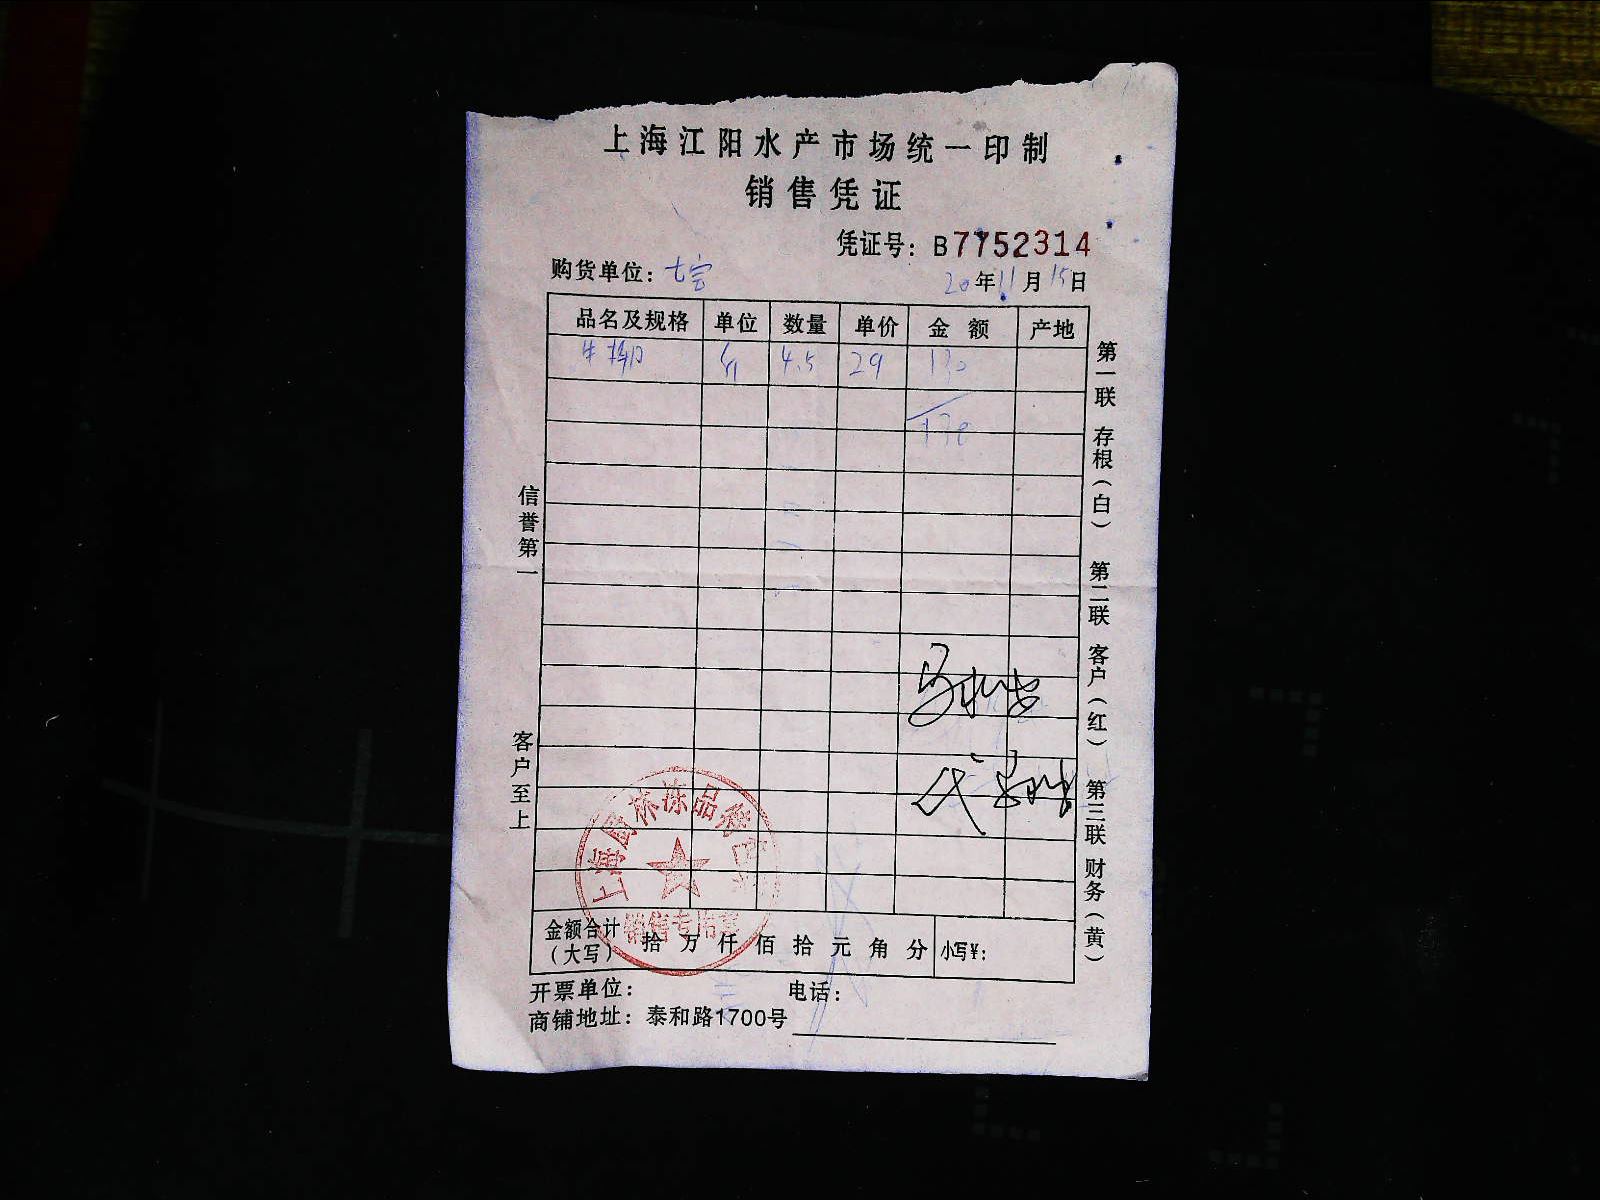 上海江阳水产市场统一印制
销售凭证
凭证号：B7752314
购货单位：七宝
20年11月15日
品名及规格 单位 数量 单价 金额 产地
牛柳 斤 4.5 29 130
130
信誉第一
客户至上
第一联 存根（白） 第二联 客户（红） 第三联 财务（黄）
销售专用章
金额合计（大写） 拾万仟佰拾元角分 小写¥：
开票单位： 电话：
商铺地址：泰和路1700号